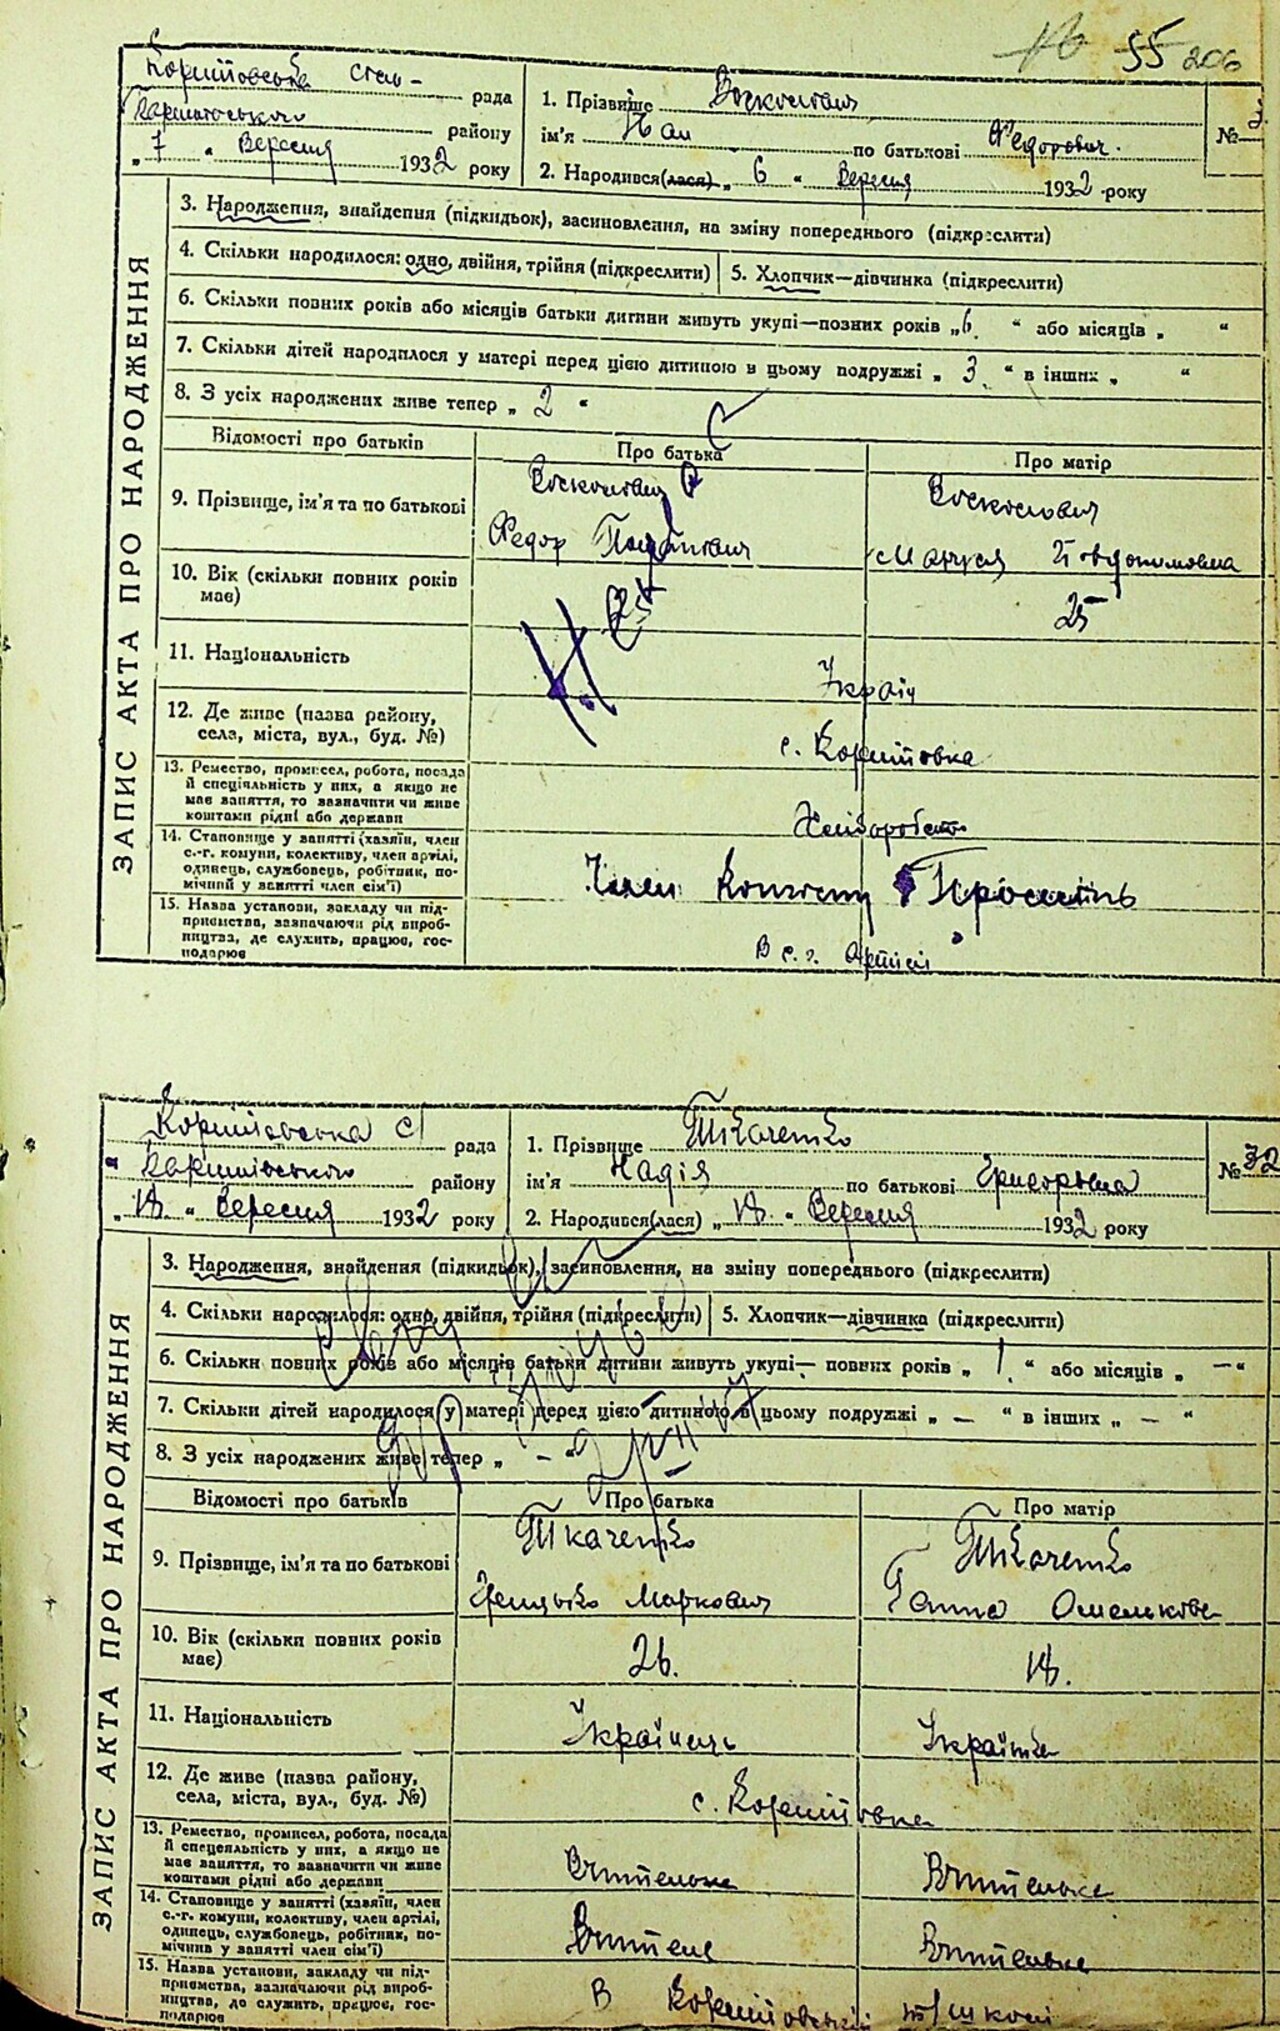 55 206
рада
району
„ 7 “ Вересня 1932 року
1. Прізвище
ім'я по батькові Федорович.
2. Народився(лася) „ 6 “ Вересня 1932 року
№
ЗАПИС АКТА ПРО НАРОДЖЕННЯ
3. Народження, знайдення (підкидьок), засиновлення, на зміну попереднього (підкреслити)
4. Скільки народилося: одно, двійня, трійня (підкреслити)
5. Хлопчик—дівчинка (підкреслити)
6. Скільки повних років або місяців батьки дитини живуть укупі—повних років „ 6. “ або місяців „ “
7. Скільки дітей народилося у матері перед цією дитиною в цьому подружжі „ 3 “ в інших „ “
8. З усіх народжених живе тепер „ 2 “
Відомості про батьків
Про батька
Про матір
9. Прізвище, ім'я та по батькові
Федор
10. Вік (скільки повних років
має)
25
25
11. Національність
Україн
12. Де живе (назва району,
села, міста, вул., буд. №)
с. Коритовка
13. Ремество, промисел, робота, посада
й спеціяльність у них, а якщо не
має заняття, то зазначити чи живе
коштами рідні або держави
Хлібороби
14. Становище у занятті (хазяїн, член
с.-г. комуни, колективу, член артілі,
одинець, службовець, робітник, по-
мічний у занятті член сім'ї)
Член
15. Назва установи, закладу чи під-
приємства, зазначаючи рід вироб-
ництва, де служить, працює, гос-
подарює
В с. г. Артілі
Коритовська с/ рада
району
„ 18 “ Вересня 1932 року
1. Прізвище Ткаченко
ім'я Надія по батькові Григорьвна
2. Народився(лася) „ 18 “ Вересня 1932 року
№ 32
ЗАПИС АКТА ПРО НАРОДЖЕННЯ
3. Народження, знайдення (підкидьок), засиновлення, на зміну попереднього (підкреслити)
4. Скільки народилося: одно, двійня, трійня (підкреслити)
5. Хлопчик—дівчинка (підкреслити)
6. Скільки повних років або місяців батьки дитини живуть укупі— повних років „ 1. “ або місяців „ — “
7. Скільки дітей народилося у матері перед цією дитиною в цьому подружжі „ — “ в інших „ — “
8. З усіх народжених живе тепер „ — “
Відомості про батьків
Про батька
Про матір
9. Прізвище, ім'я та по батькові
Ткаченко
Маркович
Ткаченко
Ганна Омелькова
10. Вік (скільки повних років
має)
26.
18.
11. Національність
Українець
Українка
12. Де живе (назва району,
села, міста, вул., буд. №)
с. Коритовка
13. Ремество, промисел, робота, посада
й спецеяльність у них, а якщо не
має заняття, то зазначити чи живе
коштами рідні або держави
Вчителька
14. Становище у занятті (хазяїн, член
с.-г. комуни, колективу, член артілі,
одинець, службовець, робітник, по-
мічнив у занятті член сім'ї)
Вчитель
Вчителька
15. Назва установи, закладу чи під-
приємства, зазначаючи рід вироб-
ництва, де служить, працює, гос-
подарює
В Коритовській школі